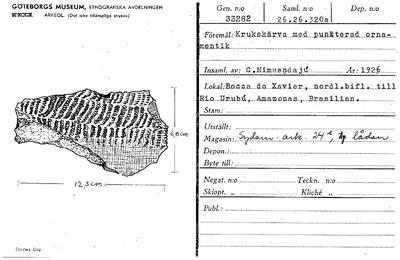 GÖTEBORGS MUSEUM, ETHNOGRAFISKA AVDELNINGEN
ARKEOL. (Det icke tillämpliga strykes)
6,8 cm
12,3 cm
Gen. n:o Saml. n:o Dep. n:o
33282 26.26.320a
Föremål: Krukskärva med punkterad orna-
mentik
Insaml. av: C.Nimuendajú År: 1926
Lokal: Bocca do Xavier, nord.bifl. till
Rio Urubú, Amazonas, Brasilien.
Stam:
Utställt:
Magasin: Sydam. ark. 24 lådan
Depon.:
Byte till:
Negat. n:o Teckn. n:o
Skiopt. „ Kliché „
Publ.: